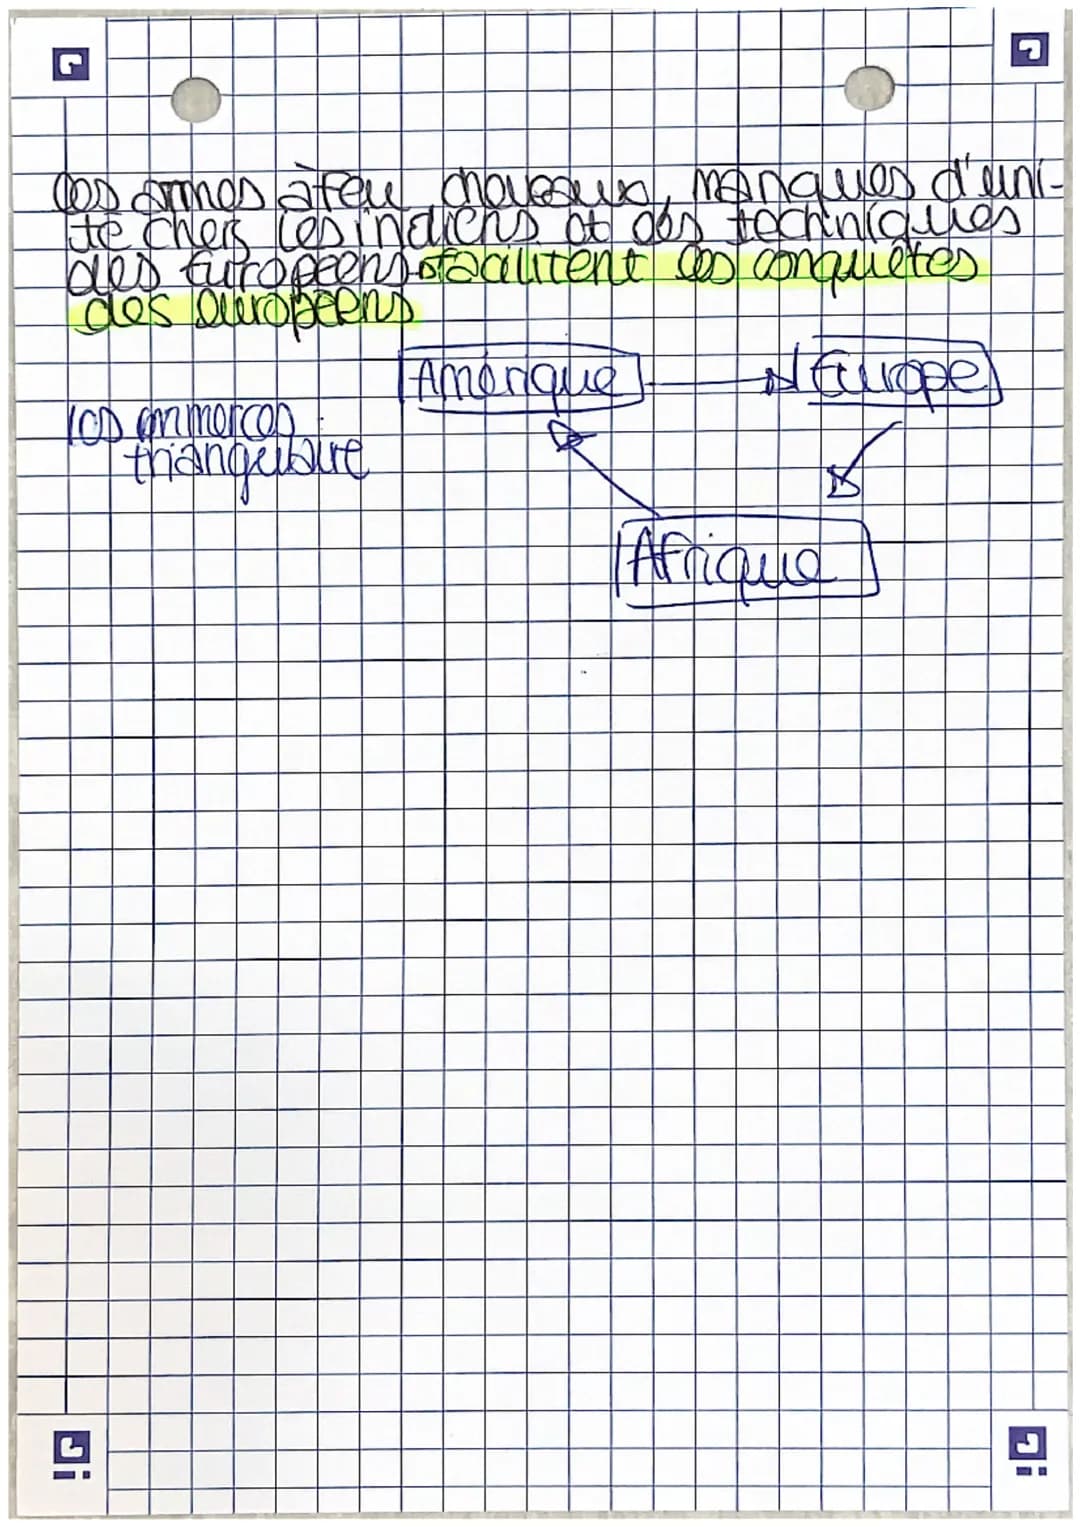 les armes à feu, chevaux, manques d'uni-
té chez les indiens et des techniques
des Européens facilitent les conquêtes
des européens
Amérique
Europe
les commerces
triangulaire
Afrique